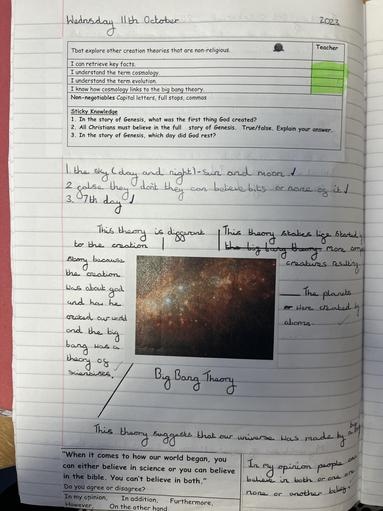 Wednsday 11th October 2023
That explore other creation theories that are non-religious.
Teacher
I can retrieve key facts.
I understand the term cosmology.
I understand the term evolution.
I know how cosmology links to the big bang theory.
Non-negotiables Capital letters, full stops, commas
Sticky Knowledge
1. In the story of Genesis, what was the first thing God created?
2. All Christians must believe in the full story of Genesis. True/false. Explain your answer.
3. In the story of Genesis, which day did God rest?
1. the sky (day and night) - sun and moon
2. false they don't they can believe bits or none of it
3. 7th day
This theory is different
to the creation
story because
the creation
was about god
and how he
created our world
and the big
bang was a
theory of
scientists.
This theory states life started
the big bang theory more
creatures
The planets
were created by
atoms.
Big Bang Theory
This theory suggests that our universe was made by a
"When it comes to how our world began, you
can either believe in science or you can believe
in the bible. You can't believe in both."
Do you agree or disagree?
In my opinion, In addition, Furthermore,
However, On the other hand
In my opinion people can
believe in both or one or
none or another